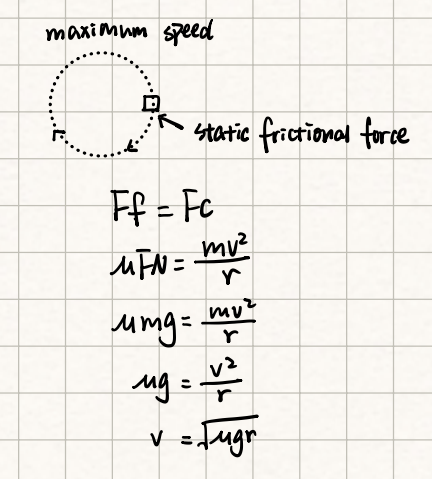 maximum speed
static frictional force
Ff = Fc
μFN = mv²/r
μmg = mv²/r
μg = v²/r
v = √μgr